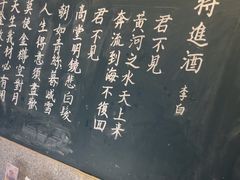 將進酒
李白
君不見
黃河之水天上来
奔流到海不復回
君不見
高堂明鏡悲白髮
朝如青絲暮成雪
人生得意須盡歡
莫使金樽空對月
天生我材必有